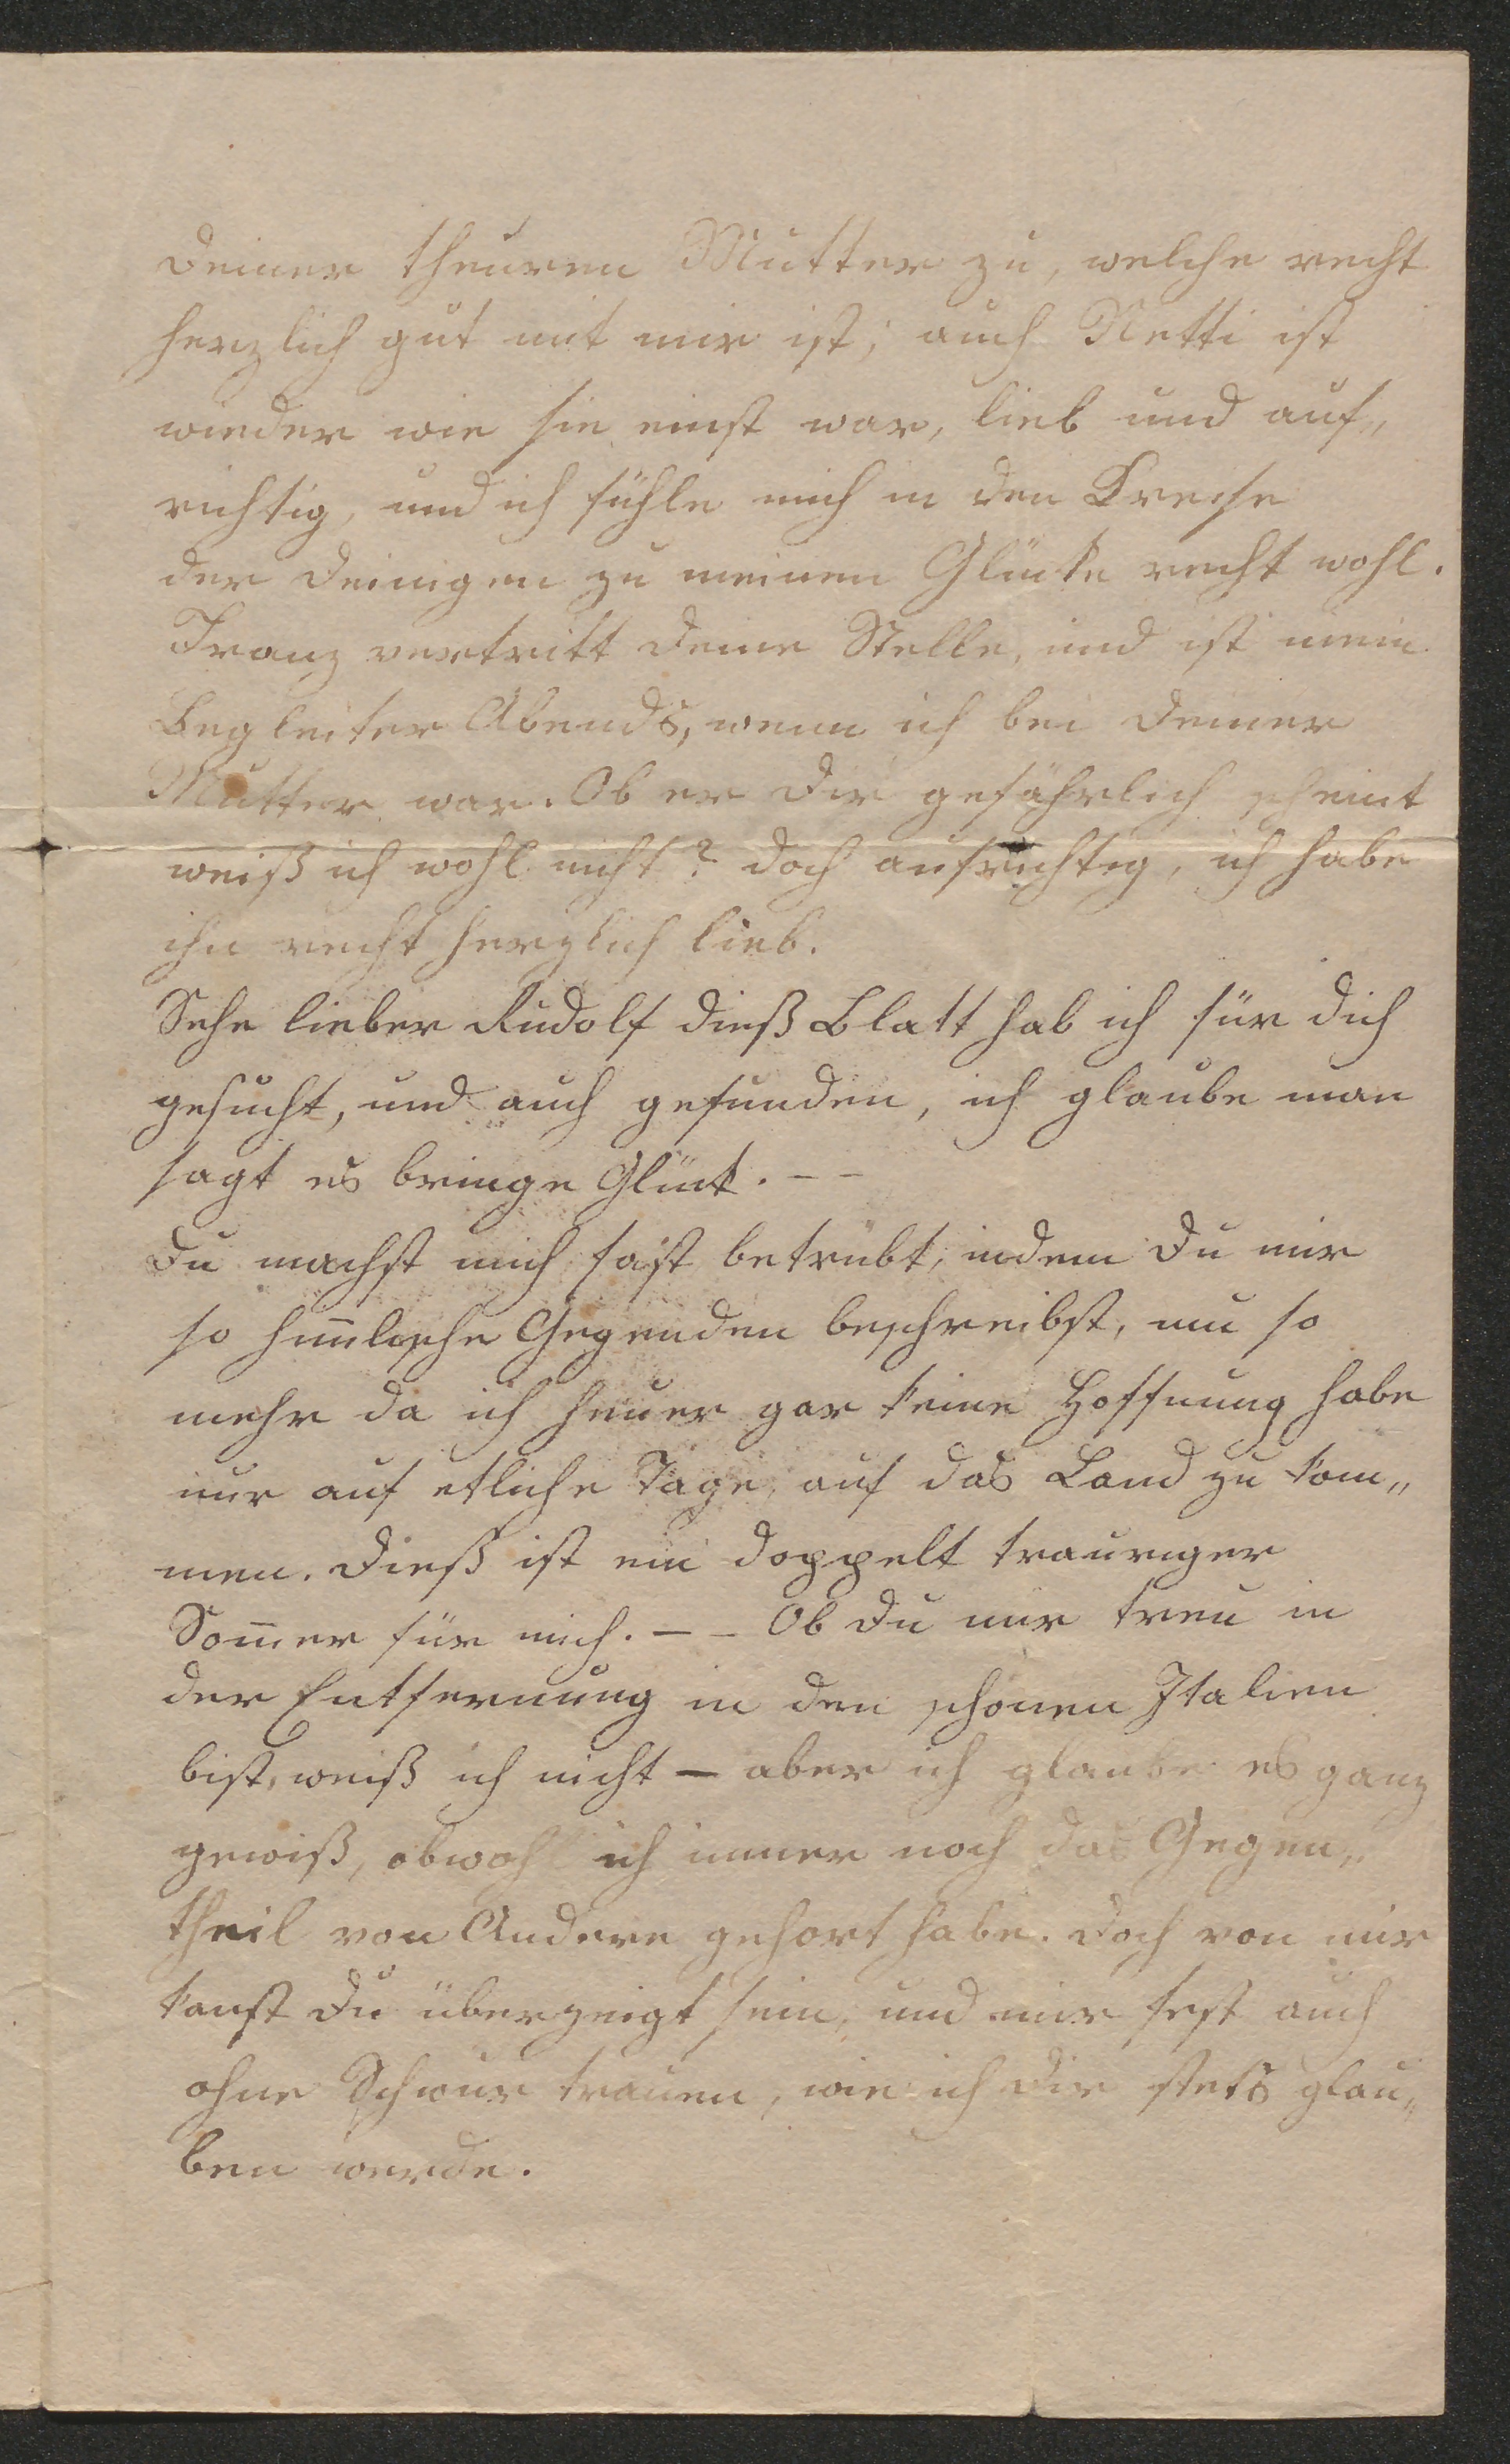 deiner theuren Mutter zu, welche recht
herzlich gut mit mir ist; auch Netti ist
wieder wie sie einst war, lieb und auf„
richtig, und ich fühle mich in den Kreise
der deinigen zu meinen Glücke recht wohl.
Franz vertritt deine Stelle, und ist mein
Begleiter Abends, wenn ich bei deiner
Mutter war. Ob er dir gefährlich scheint
weiß ich wohl nicht? doch aufrichtig, ich habe
ihn recht herzlich lieb.
Sehe lieber Rudolf dieß Blatt hab ich für dich
gesucht, und auch gefunden, ich glaube man
sagt es bringe Glück. – –
Du machst mich fast betrübt, indem Du mir
so him̅lische Gegenden beschreibst, um so
mehr da ich heuer gar keine Hoffnung habe
nur auf etliche Tage, auf das Land zu kom„
men. Dieß ist ein doppelt trauriger
Som̅er für mich. – – Ob Du mir treu in
der Entfernung in den schönen Italien
bist, weiß ich nicht – aber ich glaube es ganz
gewiß, obwohl ich immer noch das Gegen„
theil von Andern gehört habe. Doch von mir
kanst Du überzeigt sein, und mir fest auch
ohne Schwur trauen, wie ich Dir stets glau„
ben werde.